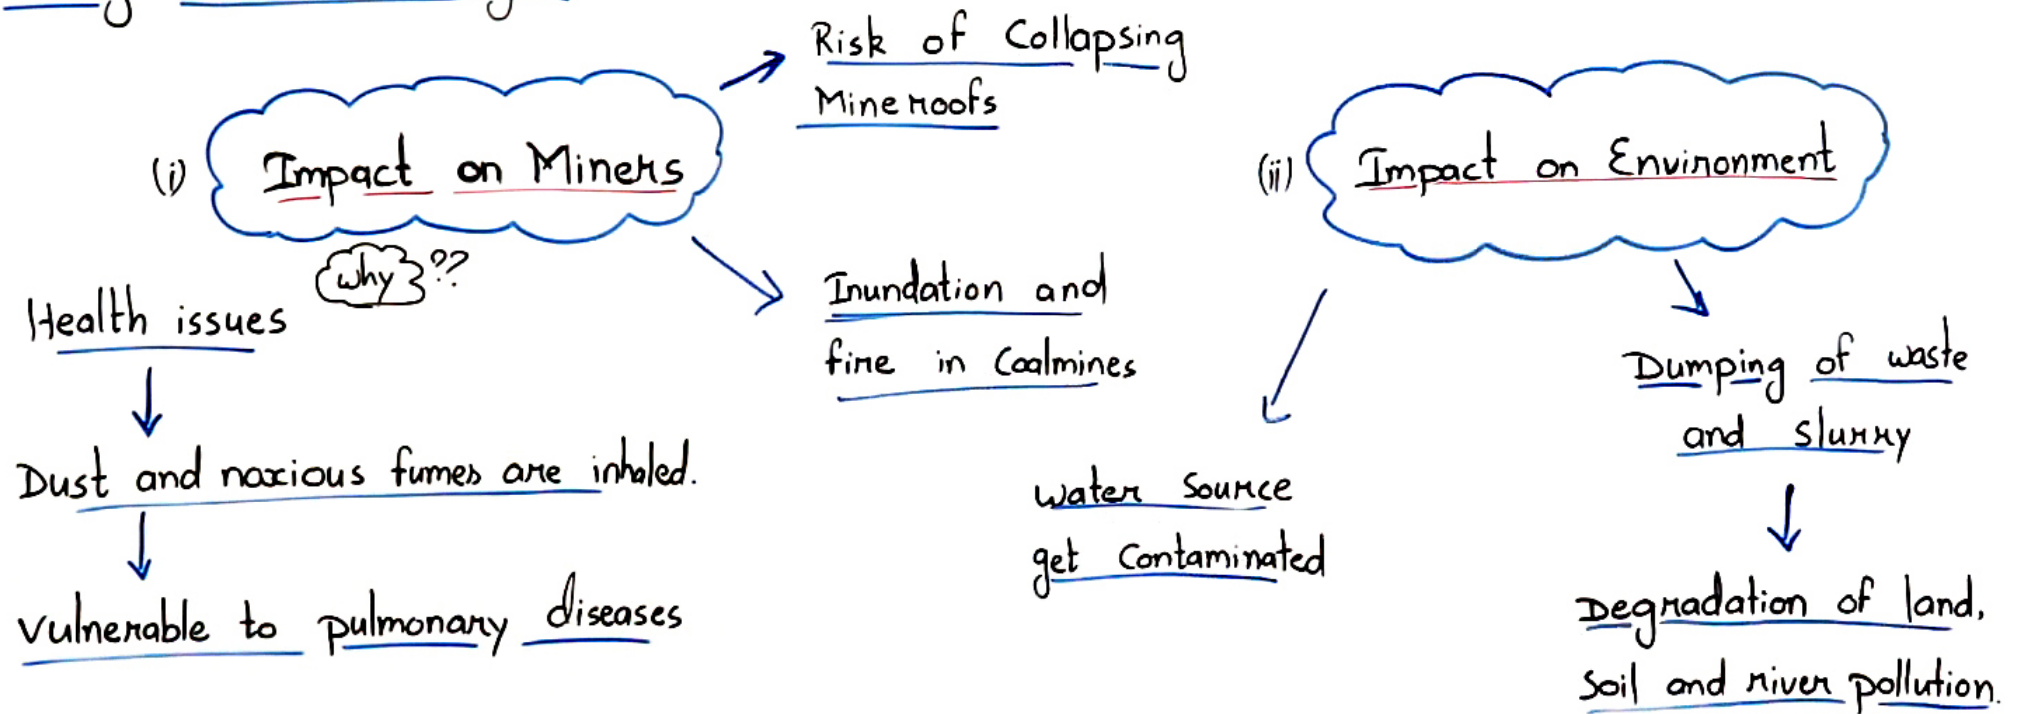 (i) Impact on Miners
Risk of Collapsing
Mine roofs
why ??
Inundation and
fire in Coalmines
Health issues
Dust and noxious fumes are inhaled.
Vulnerable to pulmonary diseases
(ii) Impact on Environment
water source
get Contaminated
Dumping of waste
and slurry
Degradation of land,
soil and river pollution.